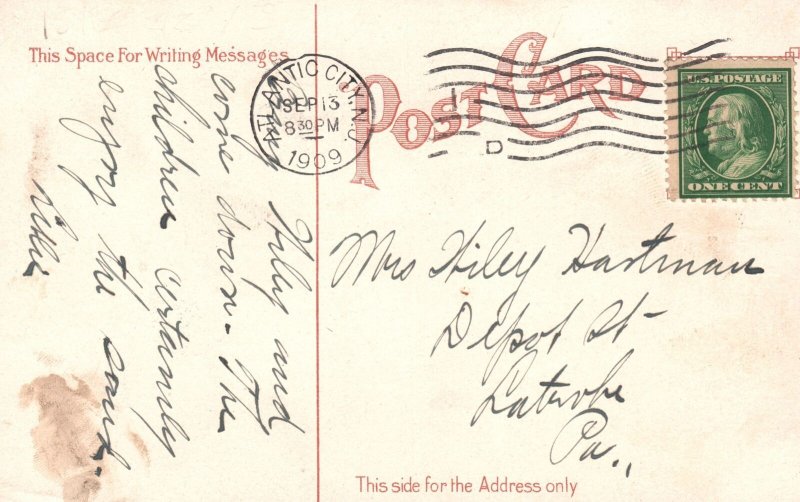 This Space For Writing Messages
POST CARD
ATLANTIC CITY, N.J.
SEP 13
8 30 PM
1909
D
U.S. POSTAGE
ONE CENT
Hily and
come down. The
children certainly
enjoy the sand.
Mrs Hiley Hartman
Depot St-
Latrobe
Pa.,
This side for the Address only